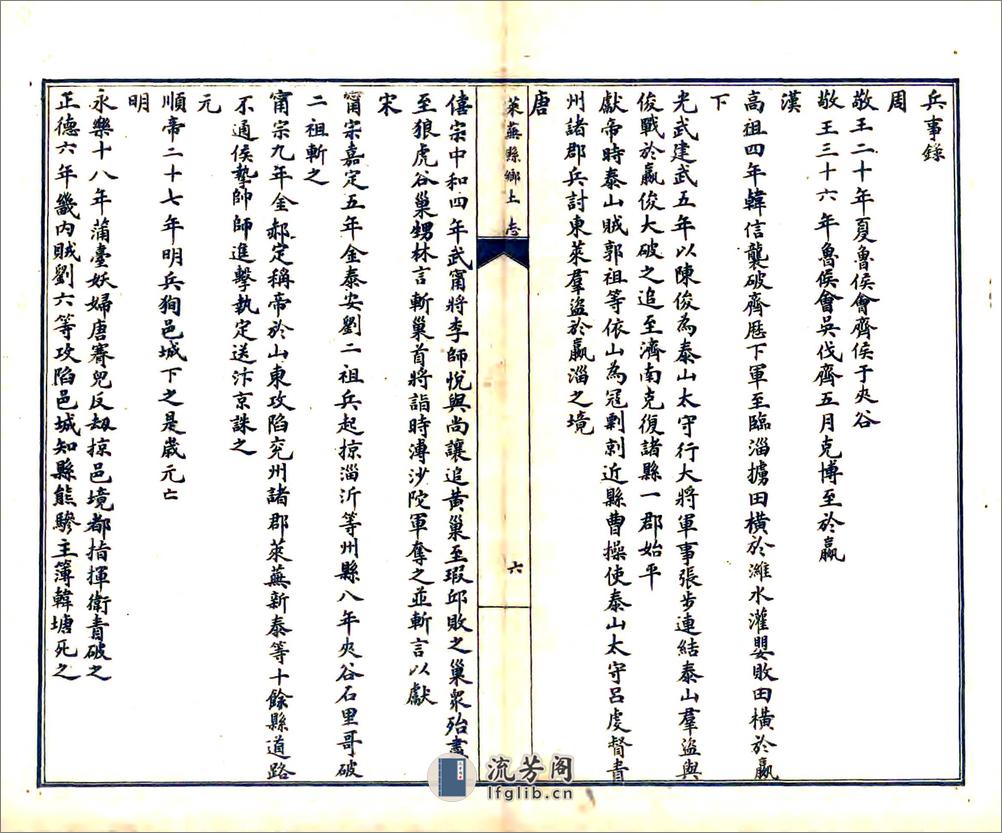 兵事錄
周
敬王二十年夏魯侯會齊侯于夾谷
敬王三十六年魯侯會吳伐齊五月克博至於嬴
漢
高祖四年韓信襲破齊歷下軍至臨淄擄田橫於濰水灌嬰敗田橫於嬴
下
光武建武五年以陳俊為泰山太守行大將軍事張步連結泰山羣盜與
俊戰於嬴俊大破之追至濟南克復諸縣一郡始平
獻帝時泰山賊郭祖等依山為寇剽剠近縣曹操使泰山太守呂虔督青
州諸郡兵討東萊羣盜於嬴淄之境
唐
萊蕪縣鄉上 志
六
僖宗中和四年武甯將李師悅與尚讓追黃巢至瑕邱敗之巢眾殆盡
至狼虎谷巢甥林言斬巢首將詣時溥沙陀軍奪之並斬言以獻
宋
甯宗嘉定五年金泰安劉二祖兵起掠淄沂等州縣八年夾谷石里哥破
二祖斬之
甯宗九年金郝定稱帝於山東攻陷兖州諸郡萊蕪新泰等十餘縣道路
不通侯摯帥師進擊執定送汴京誅之
元
順帝二十七年明兵狥邑城下之是歲元亡
明
永樂十八年蒲臺妖婦唐賽兒反刼掠邑境都指揮衛青破之
正德六年畿內賊劉六等攻陷邑城知縣熊驂主簿韓塘死之
流芳阁
lfglib.cn